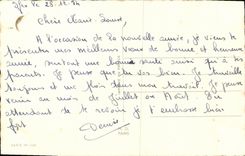 le 28.12.84
Chère Marie-Louise,
A l'occasion de la nouvelle année, je viens te
présenter mes meilleurs vœux de bonne et heureuse
année, surtout une bonne santé ainsi qu'à tes
parents. Je pense que tu vas bien. Je travaille
toujours et me plais dans mon travail. Je pense
venir au mois de Juillet ou Août. En
attendant de te revoir, je t'embrasse bien
fort
Denis
PARIS